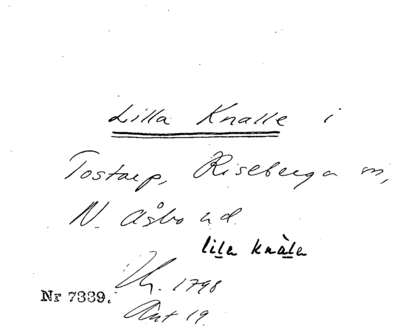 Lilla Knalle i
Tostarp, Riseberga sn,
N. Åsbo hd.
lila knàla
Uh. 1798
Nr 7339.
Ant 19.